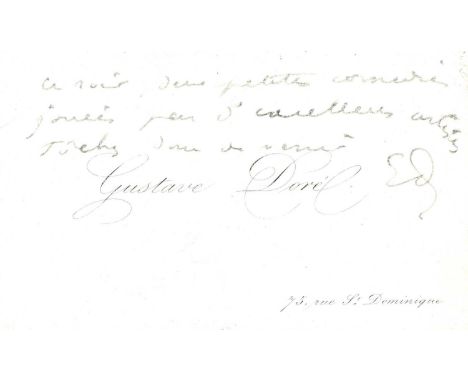 ce soir, deux petites comédies
jouées par d'excellents artistes
tâchez donc de venir
Gustave Doré.
75, rue St. Dominique